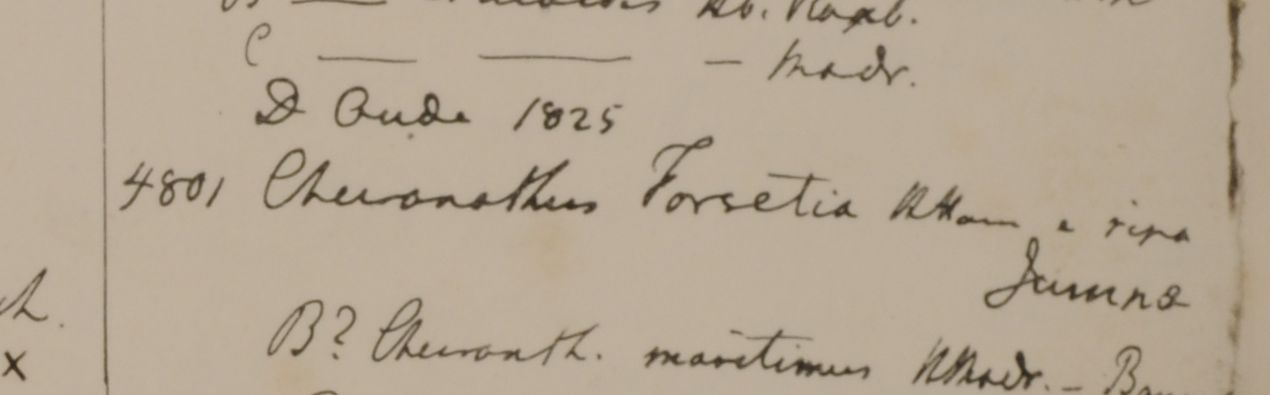 Hb. Roxb.
C — — — Madr.
D Oude 1825
4801 Cheiranthus Forsetia HHam e ripa
Jumna
h.
x
B? Cheiranth. maritimus HMadr. –